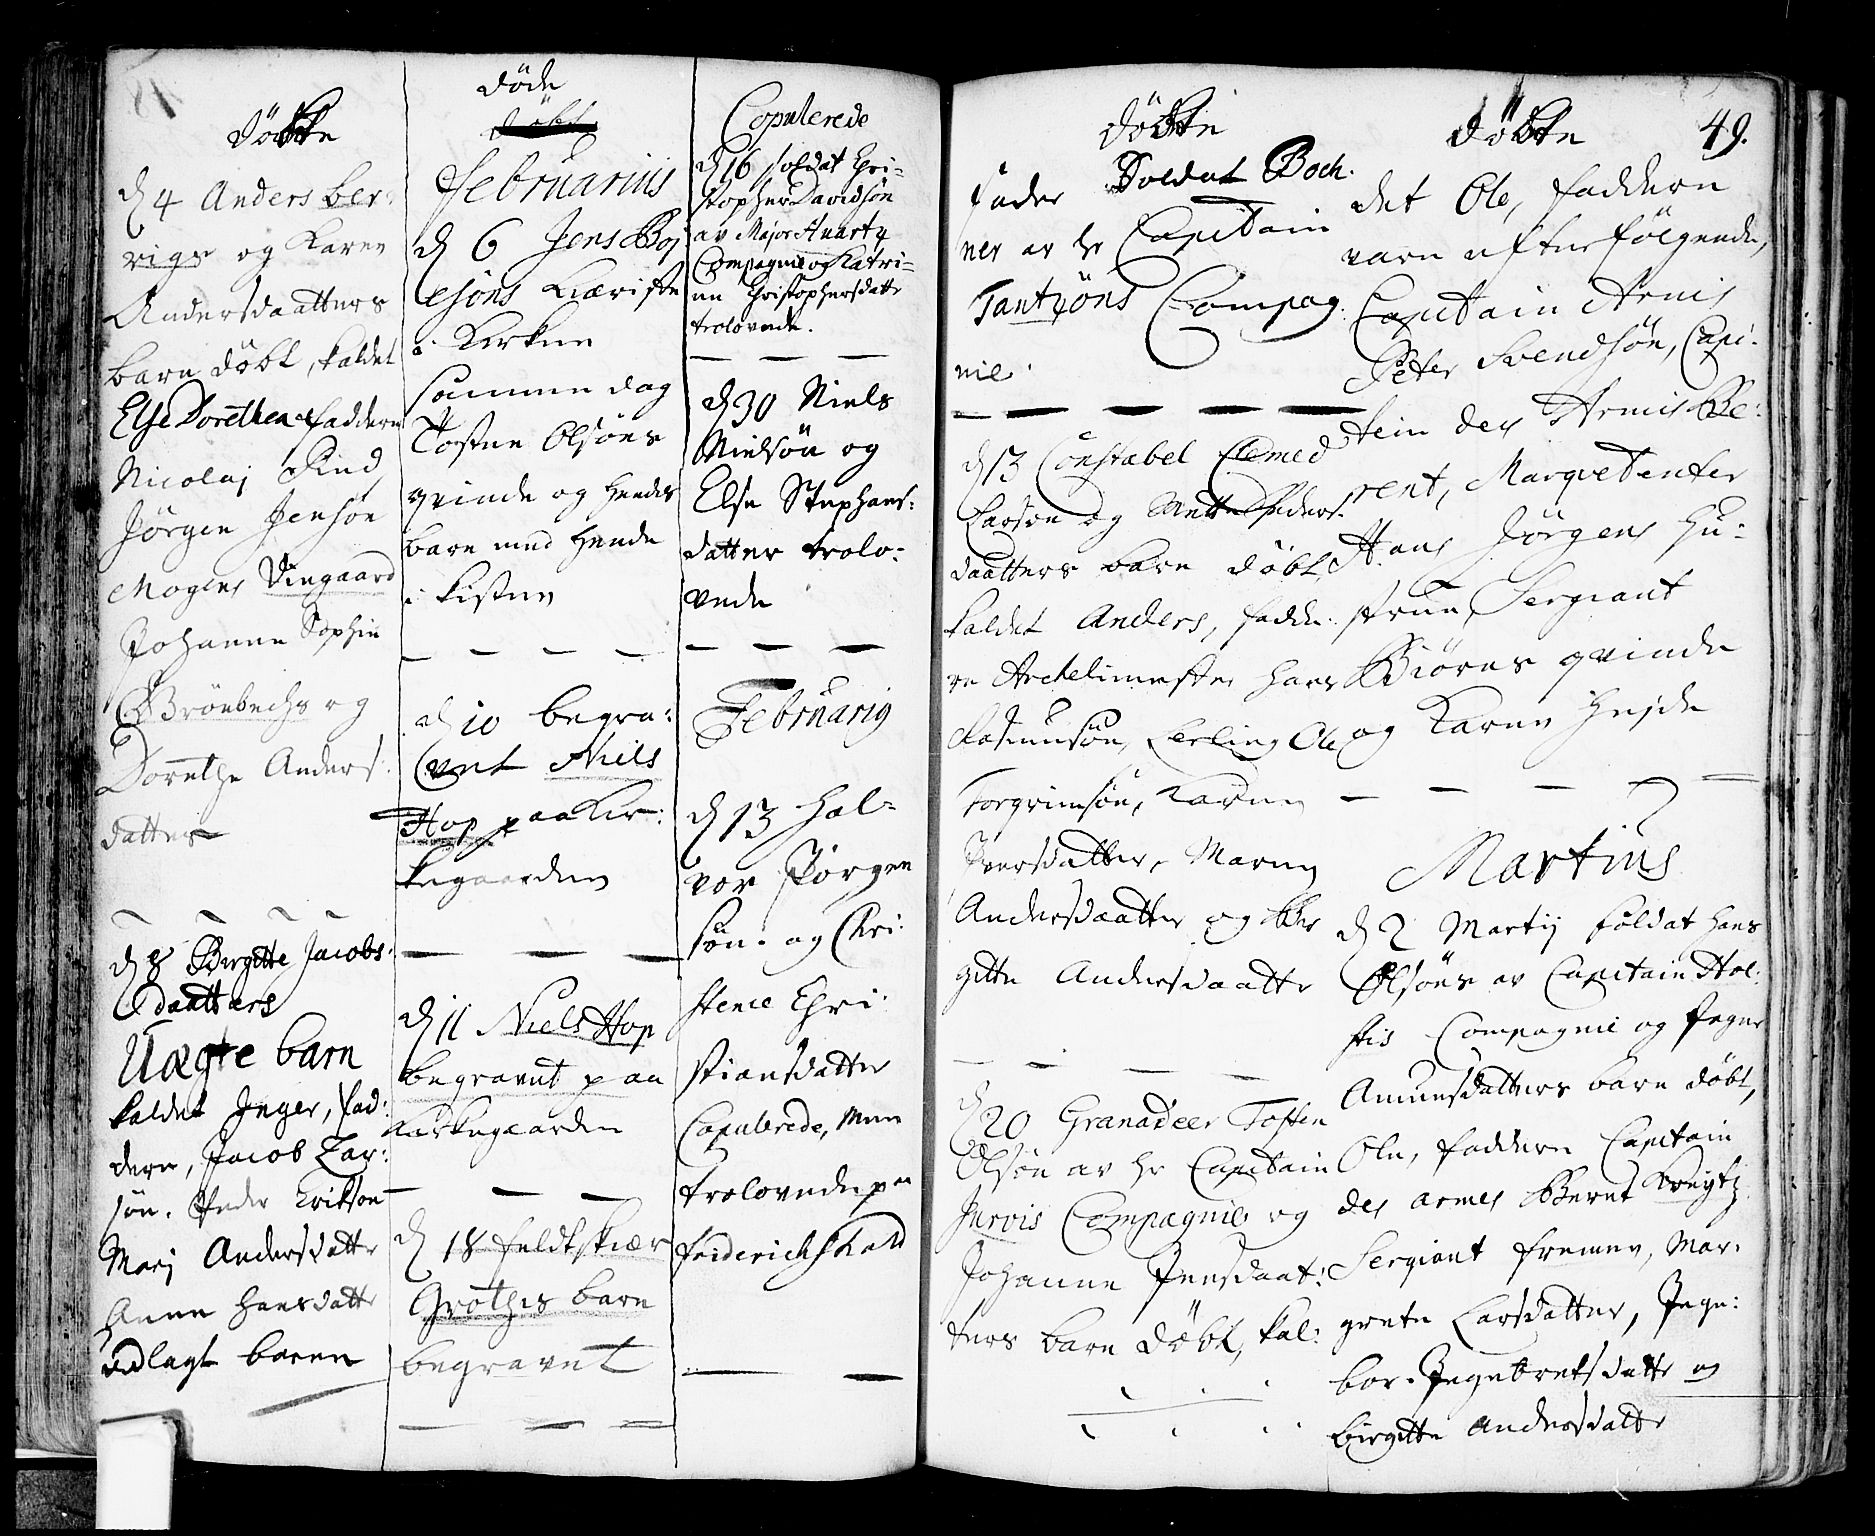 Döbte
d 4 Anders ber:
rigs og Karen
Andersdaatters
barn döbt, kaldet
Else Dorethea faddere
Nicolaj Rind
Jörgen Jensön
Mogens Vingaard
Johanne Sophie
Brönbechs og
Dorethe Anders
datter
d 8 Birgitte Jacobs:
daatters
Uægte barn
kaldet Inger, fad:
dere, Jacob Lar:
sön. Peder Erikson
Marj Andersdatter
Anne Hansdatter
udlagt baren
döde
döbt
Februarius
d 6 Jens Boj
esöns Kieriste
i Kirken
samme dag
Tosten Olsöns
qvinde og hendes
barn med hende
i kisten
d 10 begra:
vet Niels
Hop paa Kir:
kegaarden
d 11 Niels Hop
begravet paa
Kirkegaarden
d 18 feldtskiær
Grothes barn
begravet
Copulerede
d 16 soldat Chri=
stopher Davidsön
av Major Huarty
Compagnie og Katri=
ne Christophersdatter
trolovede.
d 30 Niels
Nielsön og
Else Stephans:
datter trolo:
vede
Februarij
d 13 Hal=
vor Jörgen
sön. og Chri:
stence Chri:
stiansdatter
Copulerede,
trolovede paa
Friderichshald
döbte
fader Soldat Boch.
ner av hr Capitain
Tantzöns Compag
nie.
d 13 Constabel Clemed
Larsön og Mette Peders:
daatters barn döbt,
kaldet Anders, fadde:
re Archelimester Hans
Rasmusön, Erling Ole
Torgrimsön, Karen
Iversdatter, Maren
Andersdaatter og Bir
gitte Andersdaatter
d 20 Granadeer Tosten
Olsön av hr Capitain
Jurvis Compagnie og
Johanne Jensdaat:
ters barn döbt, kal:
döbte
49.
det Ole, faddern
varn efterfölgende,
Capitain Armis
Peter Svendsön, Capi:
tein des Armis Be:
rent, Marqvetenter
Hans Jörgens hu:
strue, Sergiant
Biörns qvinde
og Karen Hejde
Martius
d 2 Martij soldat Hans
Olsöns av Capitain Hol:
stis Compagnie og
Amunsdatters barn döbt,
Ole, faddern Capitain
des armes Bernt Kreytz
Sergiant fremen, Mar:
grete Larsdatter, Inge:
bor. Ingebretsdatter og
birgitte Andersdatter